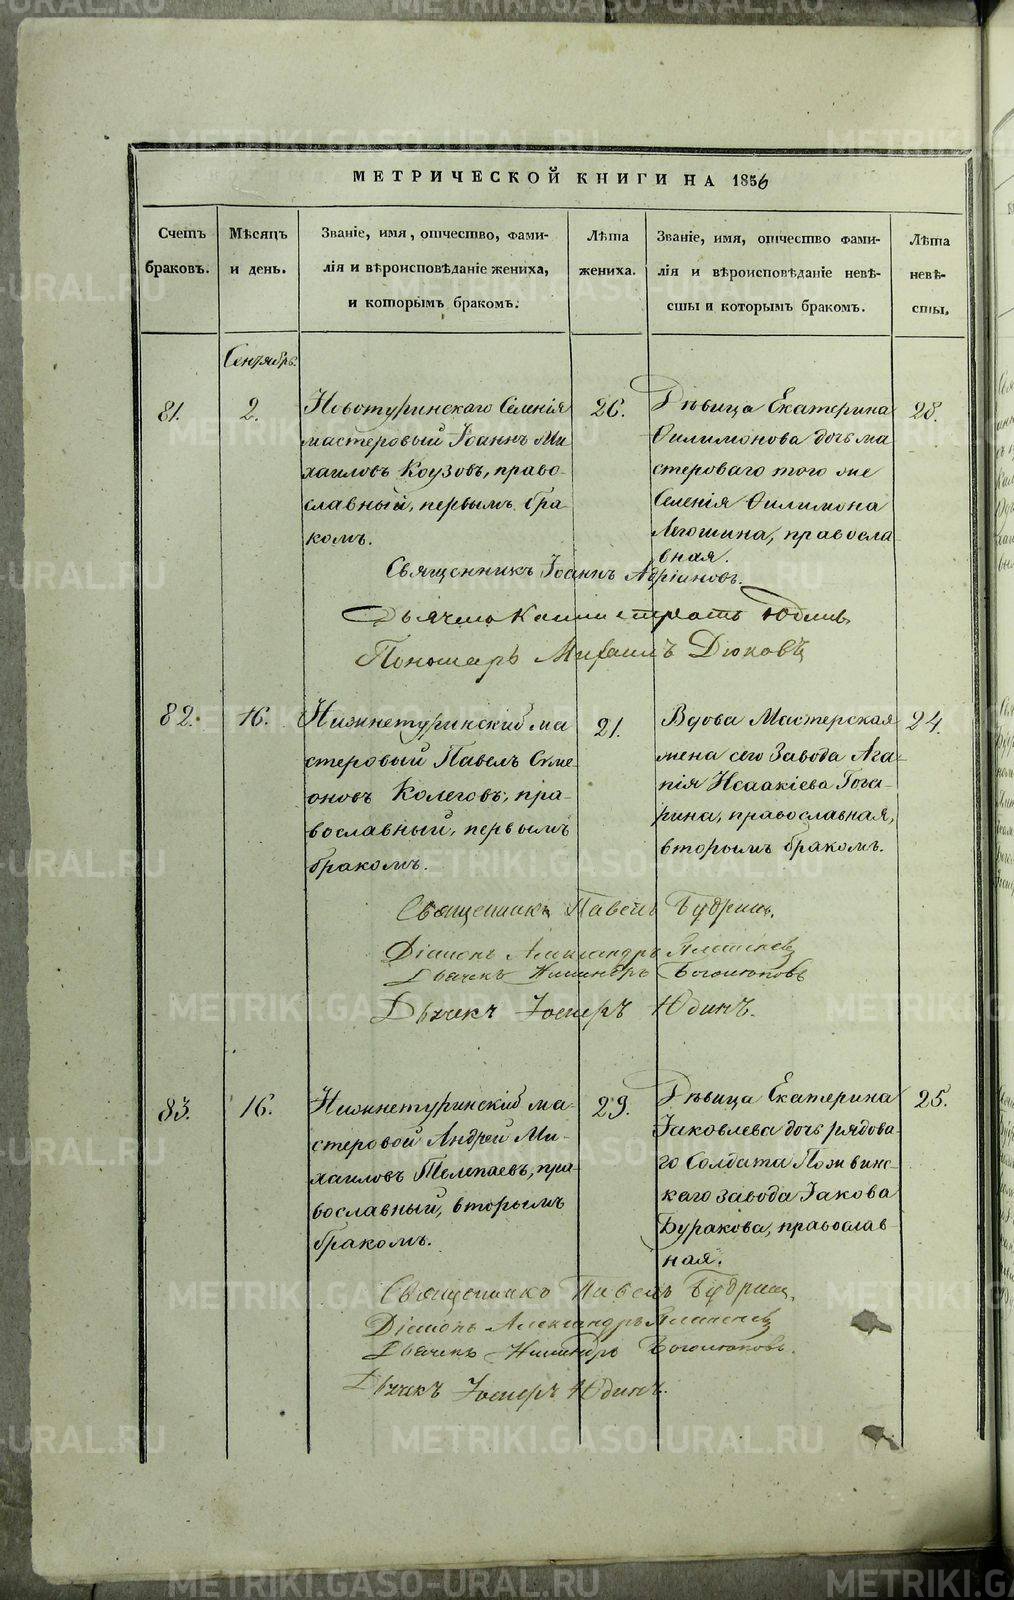 МЕТРИЧЕСКОЙ КНИГИ НА 1856
Счетъ браковъ.
Мѣсяцъ и день.
Званіе, имя, отчество, фами-
лія и вѣроисповѣданіе жениха,
и которымъ бракомъ.
Лѣта жениха.
Званіе, имя, отчество фами-
лія и вѣроисповѣданіе невѣ-
сты и которымъ бракомъ.
Лѣта невѣ-
сты.
Сентябрь.
81.
2.
Новотуринскаго Селенія
мастеровый Іоаннъ Ми
хаиловъ Коузовъ, право-
славный, первымъ бра
комъ.
26.
Дѣвица Екатерина
Филимонова дочь ма
стероваго того же
Селенія Филимона
Легошина, правосла
вная.
28.
Священникъ Іоаннъ Адріановъ.
Дьячекъ Каллистратъ Юдинъ
Пономарь Михаилъ Дюковъ
82.
16.
Нижнетуринскій ма
стеровый Павелъ Симе
оновъ Колеговъ, пра-
вославный, первымъ
бракомъ.
21.
Вдова Мастерская
жена сего Завода Ага-
пія Исаакіева Гога-
рина, православная,
вторымъ бракомъ.
24.
Священникъ Павелъ Будринъ.
Діаконъ Александръ
Дьячекъ Никандръ Боголюповъ
Дьячекъ Іосифъ Юдинъ.
83.
16.
Нижнетуринскій ма-
стеровой Андрей Ми-
хаиловъ Телепаевъ, пра
вославный, вторымъ
бракомъ.
29.
Дѣвица Екатерина
Іаковлева дочь рядова-
го Солдата Пожвинс-
каго завода Іакова
Буракова, православ
ная.
25.
Священникъ Павелъ Будринъ.
Діаконъ Александръ
Дьячекъ Никандръ Боголюповъ.
Дьячекъ Іосифъ Юдинъ.
METRIKI.GASO-URAL.RU